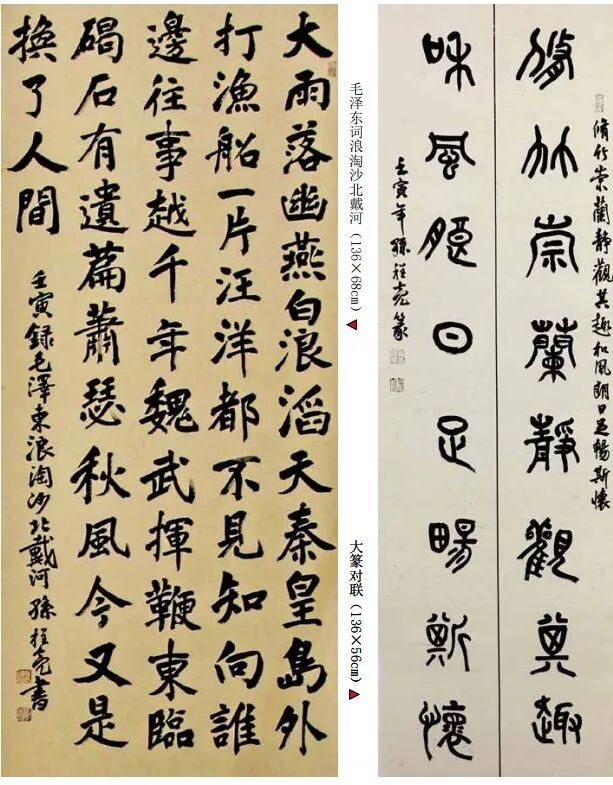 大雨落幽燕白浪滔天秦皇島外
打漁船一片汪洋都不見知向誰
邊往事越千年魏武揮鞭東臨
碣石有遺篇蕭瑟秋風今又是
換了人間
壬寅錄毛澤東浪淘沙北戴河 孫書
毛泽东词浪淘沙北戴河（136×68cm）
大篆对联（136×56cm）
脩竹崇蘭靜觀其趣和風朗日足暢斯懷
脩竹崇蘭靜觀其趣
和風朗日足暢斯懷
壬寅年孫篆